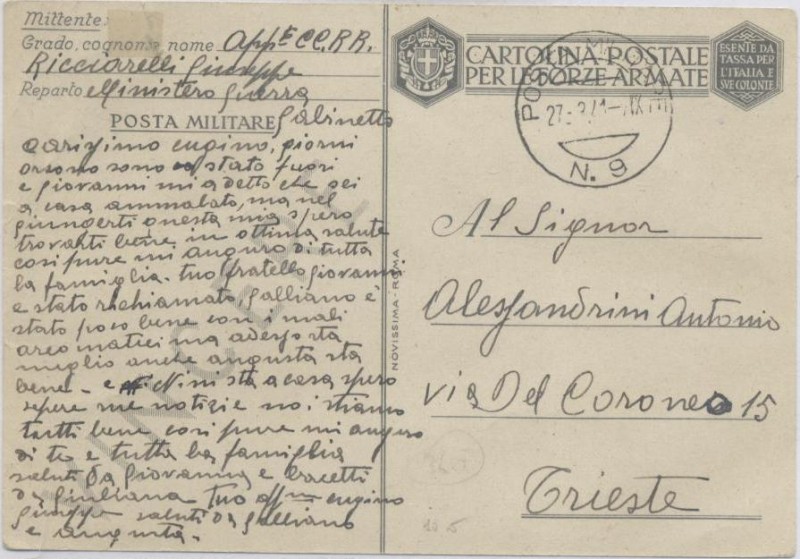 Mittente:
Grado, cognome, nome App.E CC.RR.
Ricciarelli Giuseppe
Reparto Ministero Guerra
POSTA MILITARE Gabinetto
carissimo cugino, giorni
orsono sono stato fuori
e giovanni mi a detto che sei
a casa ammalato, ma nel
giungerti questa mia spero
trovarti bene in ottima salute
cosi pure mi auguro di tutta
la famiglia. tuo fratello giovanni
e stato richiamato, galliano è
stato poco bene con i mali
areomatici ma adesso sta
meglio anche augusta sta
bene - e Nini sta a casa spero
sepere tue notizie noi stiamo
tutti bene cosi pure mi auguro
di te e tutta la famiglia
saluti da giovanna e bacetti
da giuliana tuo aff.mo cugino
giuseppe saluti da galliano
e augusta.
CARTOLINA POSTALE
PER LE FORZE ARMATE
ESENTE DA
TASSA PER
L'ITALIA E
SUE COLONIE
N. 9
NOVISSIMA - ROMA
Al Signor
Alessandrini Antonio
via Del Coroneo 15
Trieste